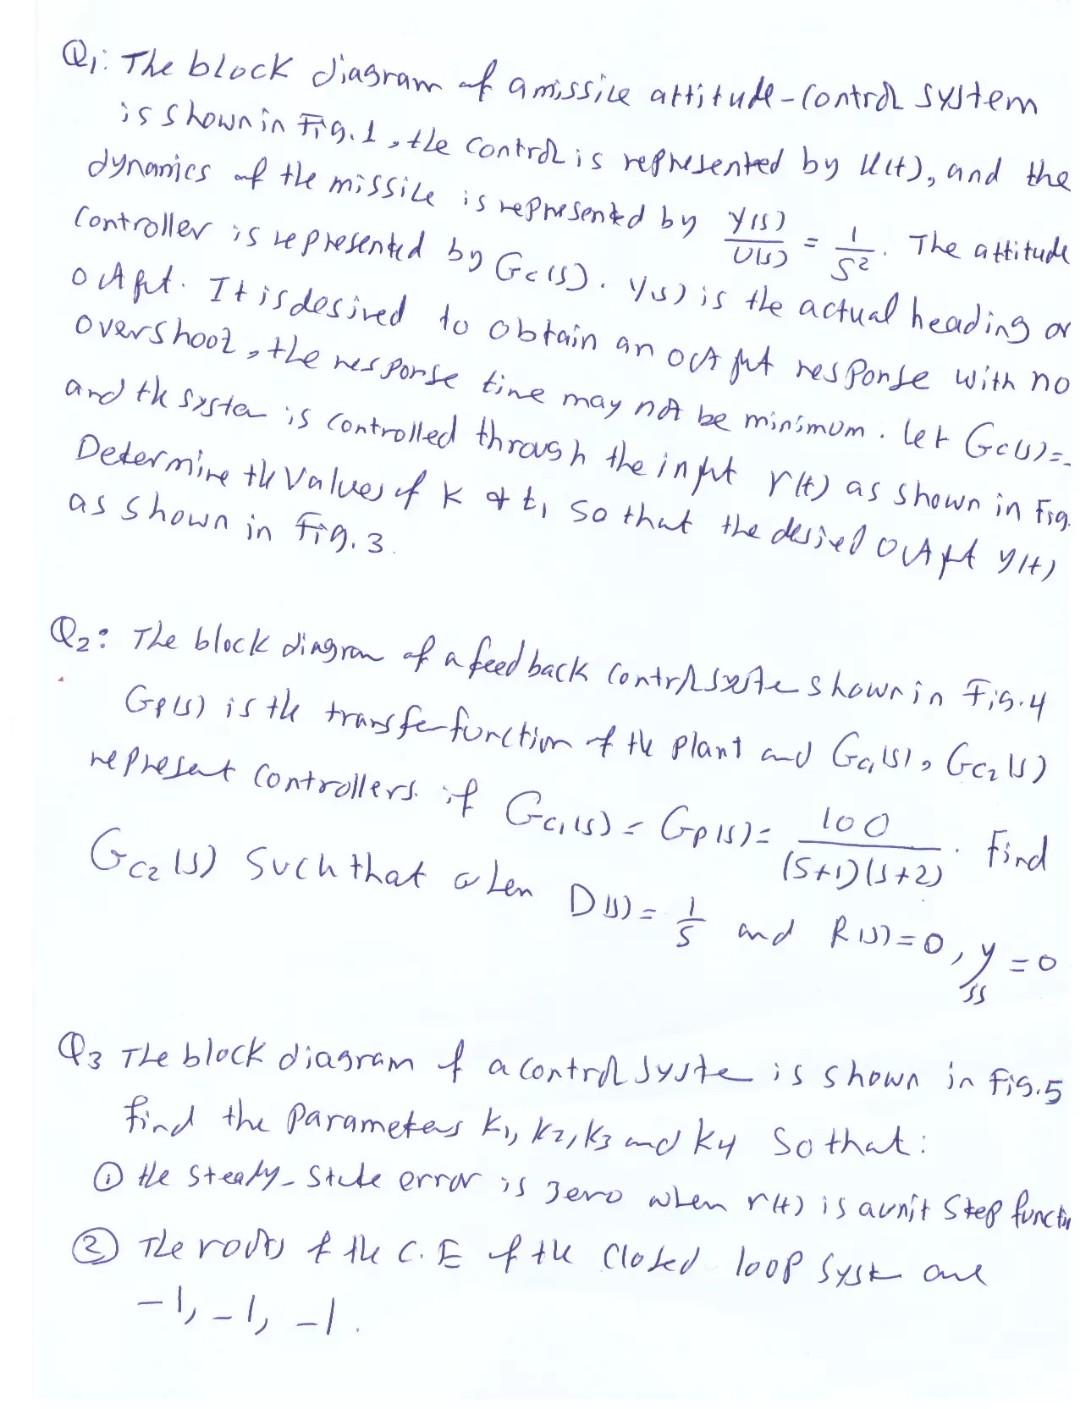 Q1: The block diagram of a missile attitude-control system
is shown in Fig.1, the control is represented by u(t), and the
dynamics of the missile is represented by Y(s)/U(s) = 1/S². The attitude
Controller is represented by Gc(s). Y(s) is the actual heading or
output. It is desired to obtain an output response with no
overshoot, the response time may not be minimum. let Gc(s)=
and the system is controlled through the input r(t) as shown in Fig.
Determine the Values of K & t1 so that the desired output y(t)
as shown in Fig.3.
Q2: The block diagram of a feedback control system shown in Fig.4
Gp(s) is the transfer function of the plant and Gc1(s), Gc2(s)
represent controllers. if Gc1(s) = Gp(s) = 100/(S+1)(S+2). Find
Gc2(s) such that when D(s) = 1/S and R(s)=0, yss=0
Q3 The block diagram of a control system is shown in Fig.5
find the parameters K1, K2, K3 and K4 so that:
① the steady-state error is zero when r(t) is a unit step functi
② The roots of the C.E of the closed loop system are
-1, -1, -1.